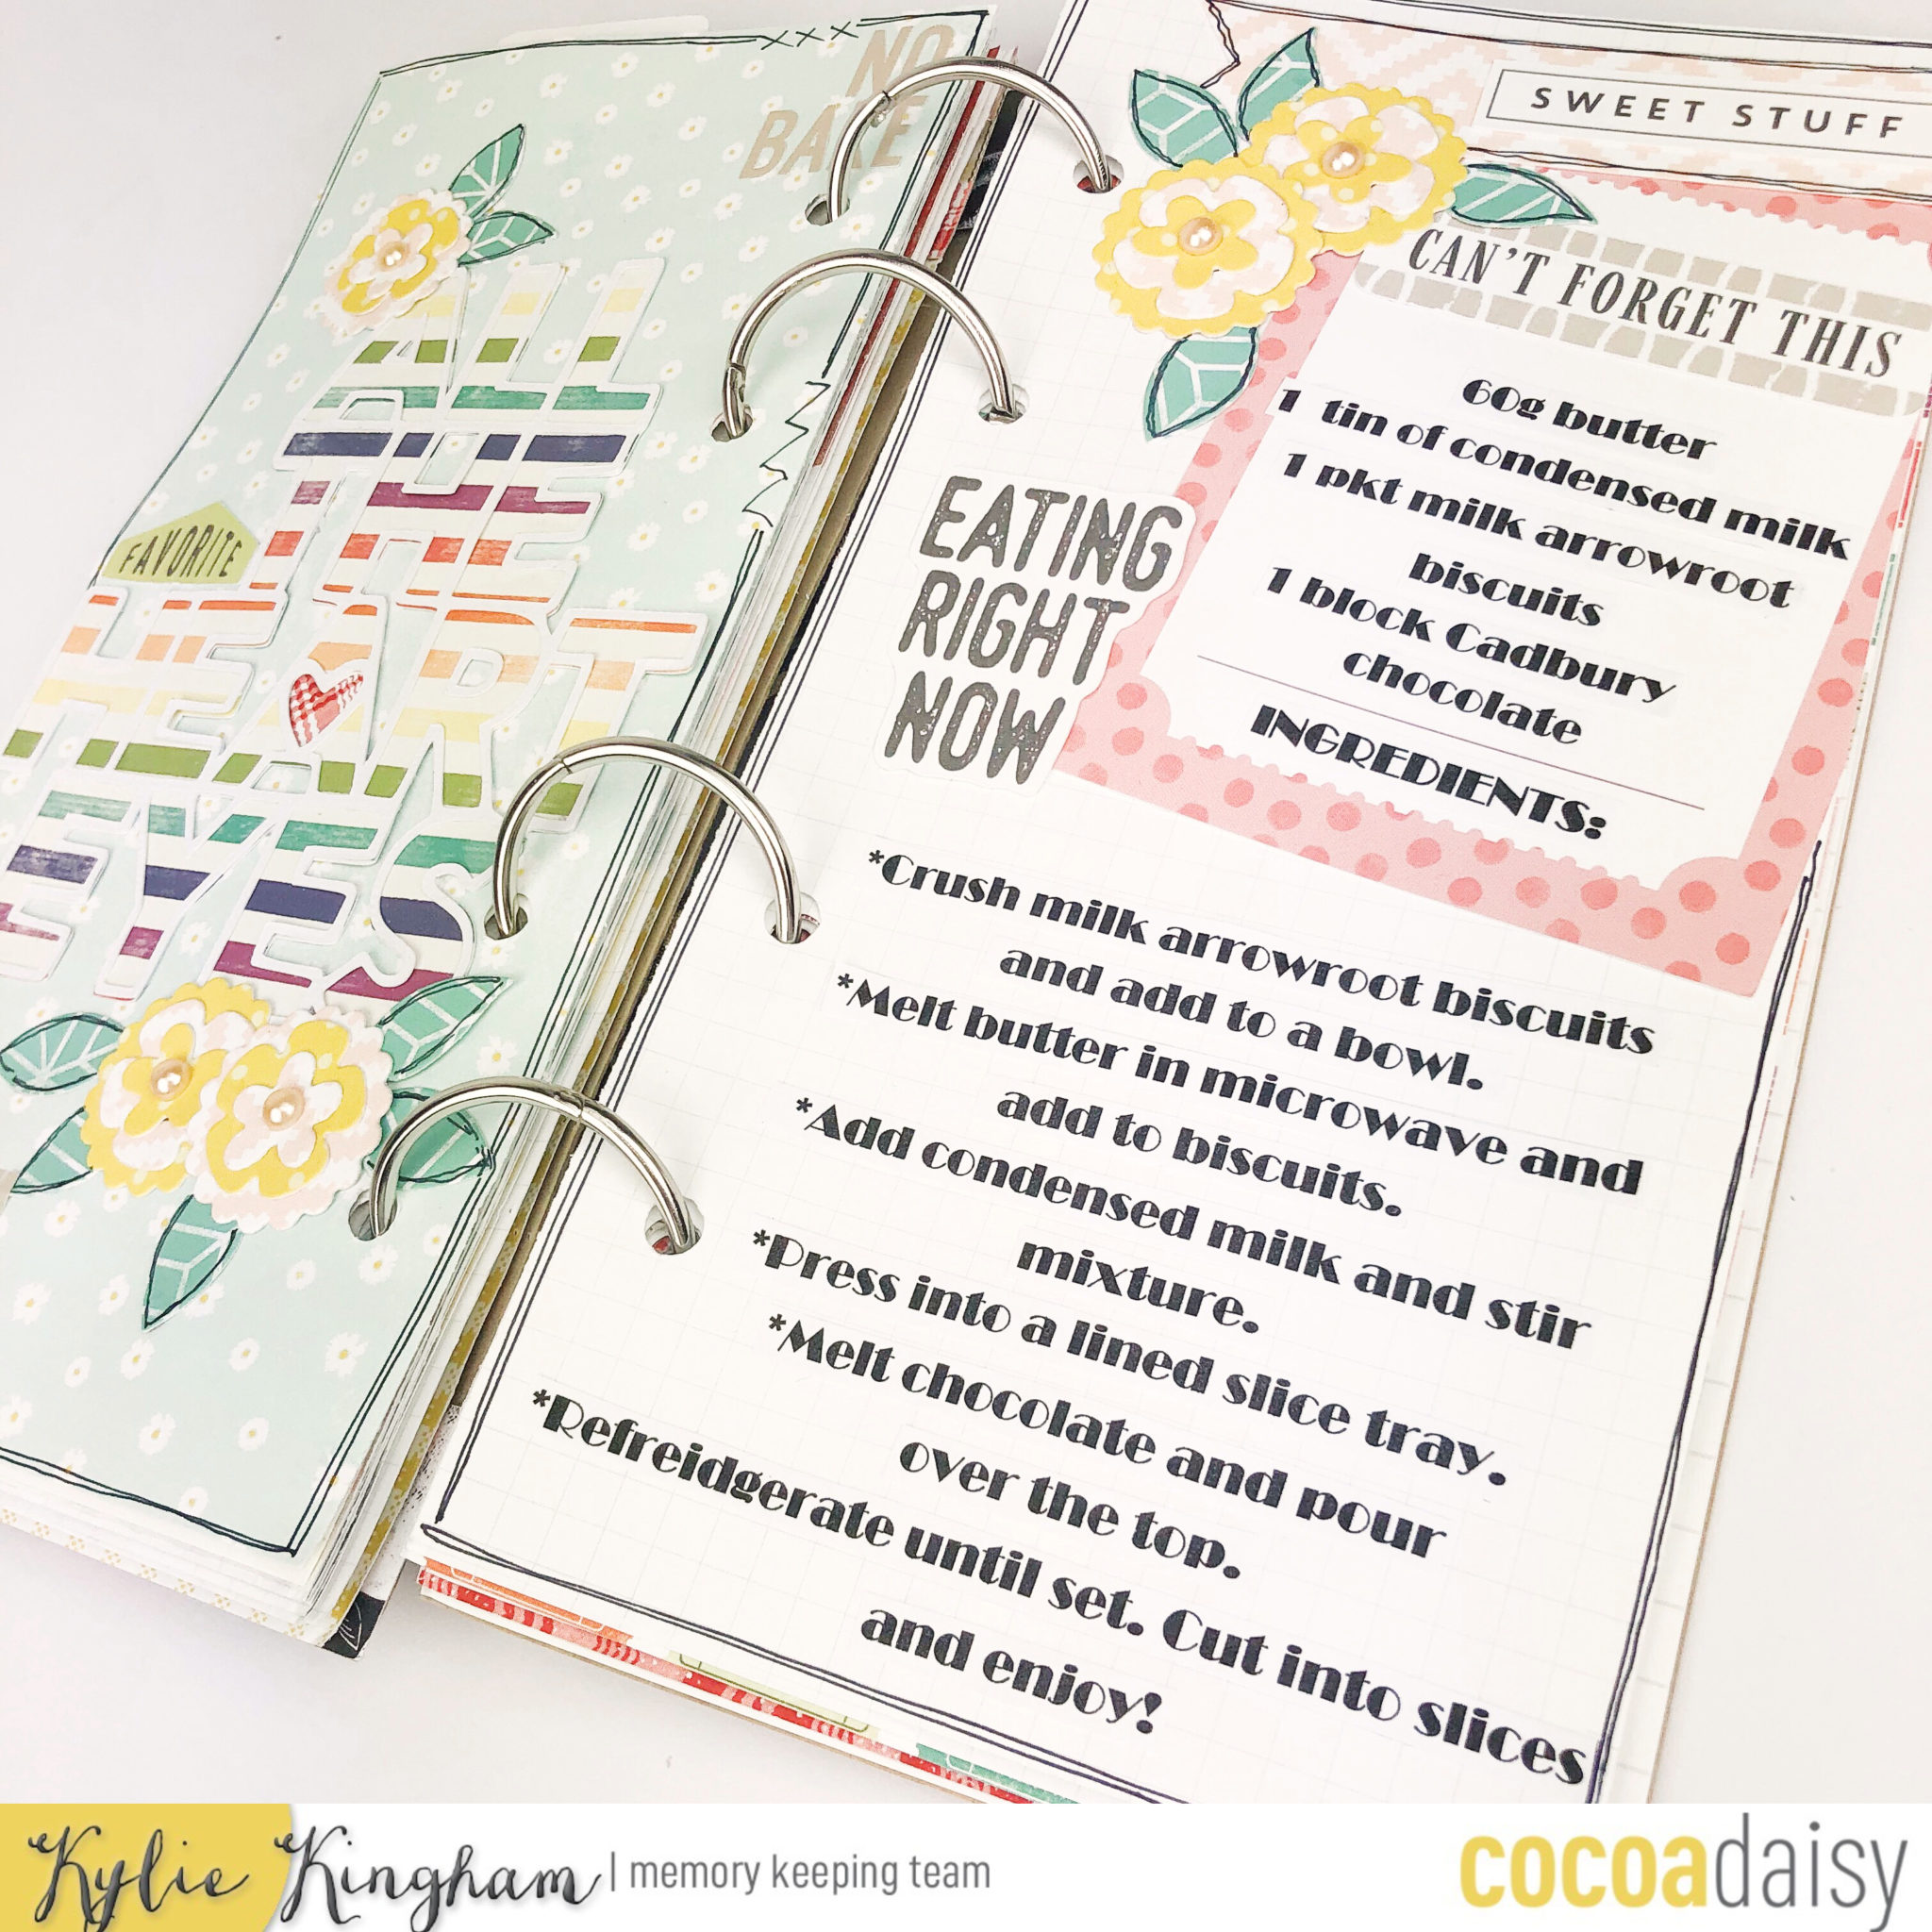 NO
BAKE
ALL
THE
HEART
EYES
FAVORITE
SWEET STUFF
CAN'T FORGET THIS
60g butter
1 tin of condensed milk
1 pkt milk arrowroot
biscuits
1 block Cadbury
chocolate
INGREDIENTS:
EATING
RIGHT
NOW
*Crush milk arrowroot biscuits
and add to a bowl.
*Melt butter in microwave and
add to biscuits.
*Add condensed milk and stir
mixture.
*Press into a lined slice tray.
*Melt chocolate and pour
over the top.
*Refreidgerate until set. Cut into slices
and enjoy!
Kylie Kingham | memory keeping team
cocoadaisy